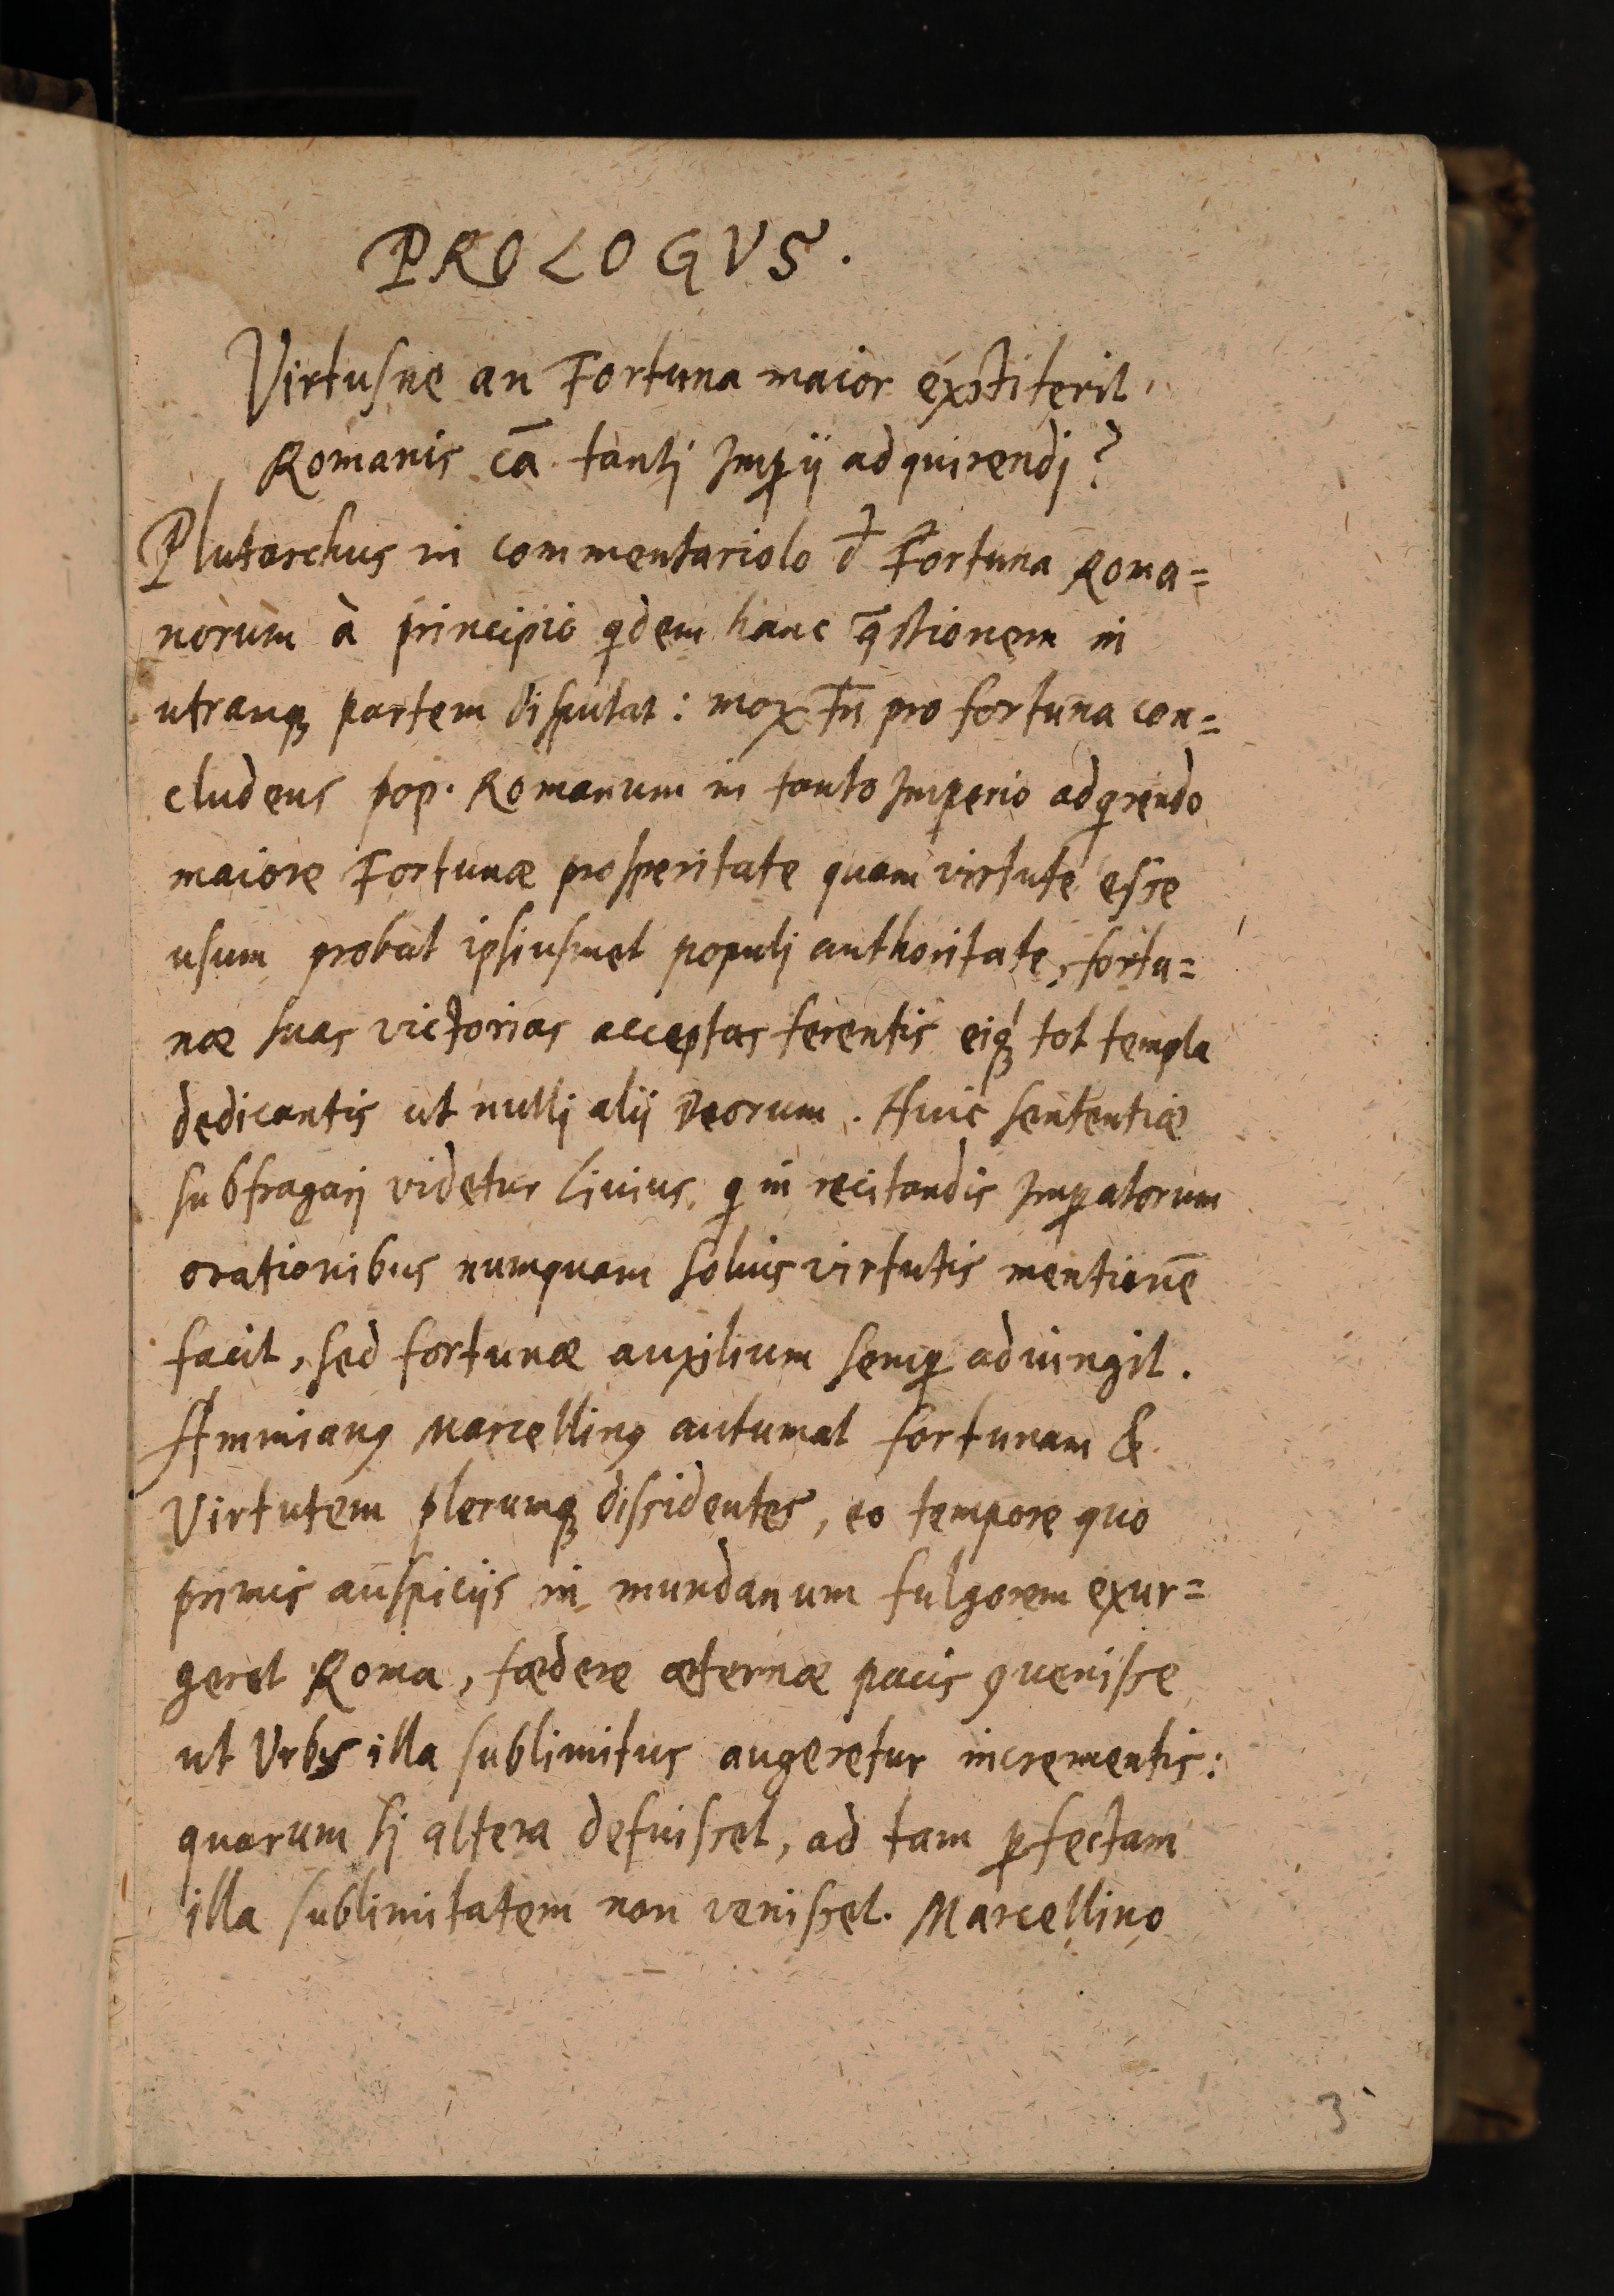 PROLOGVS.
Virtusne an Fortuna maior éxstiterit
Romanis cā tantj Imꝑij adquirendj?
Plutarchus in commentariolo đ Fortuna Roma=
norum à principio qdem hanc q̄stionem in
utranqꝫ partem disputat: mox tn̄ pro fortuna con=
cludens pop. Romanum in tanto Imperio adqrendo
maiore Fortunæ prosperitate quam virtute esse
usum probat ipsiusmet populj authoritate, fortu=
næ suas victorias acceptas ferentis eiqꝫ tot templa
dedicantis ut nullj alij Deorum. Huic sententiæ
subfragarj videtur Liuius, q in recitandis Imꝑatorum
orationibus numquam solius virtutis mentionē
facit, sed fortunæ auxilium semꝑ adiungit.
Ammianꝰ Marcellinꝰ autumat fortunam &
Virtutem plerumqꝫ dissidentes, eo tempore quo
primis auspicijs in mundanum fulgorem exur=
geret Roma, fœdere æternæ pacis ꝯuenisse
ut Vrbs illa sublimitus augeretur incrementis:
quarum sj altera defuisset, ad tam ꝑfectam
illa sublimitatem non venisset. Marcellino
3